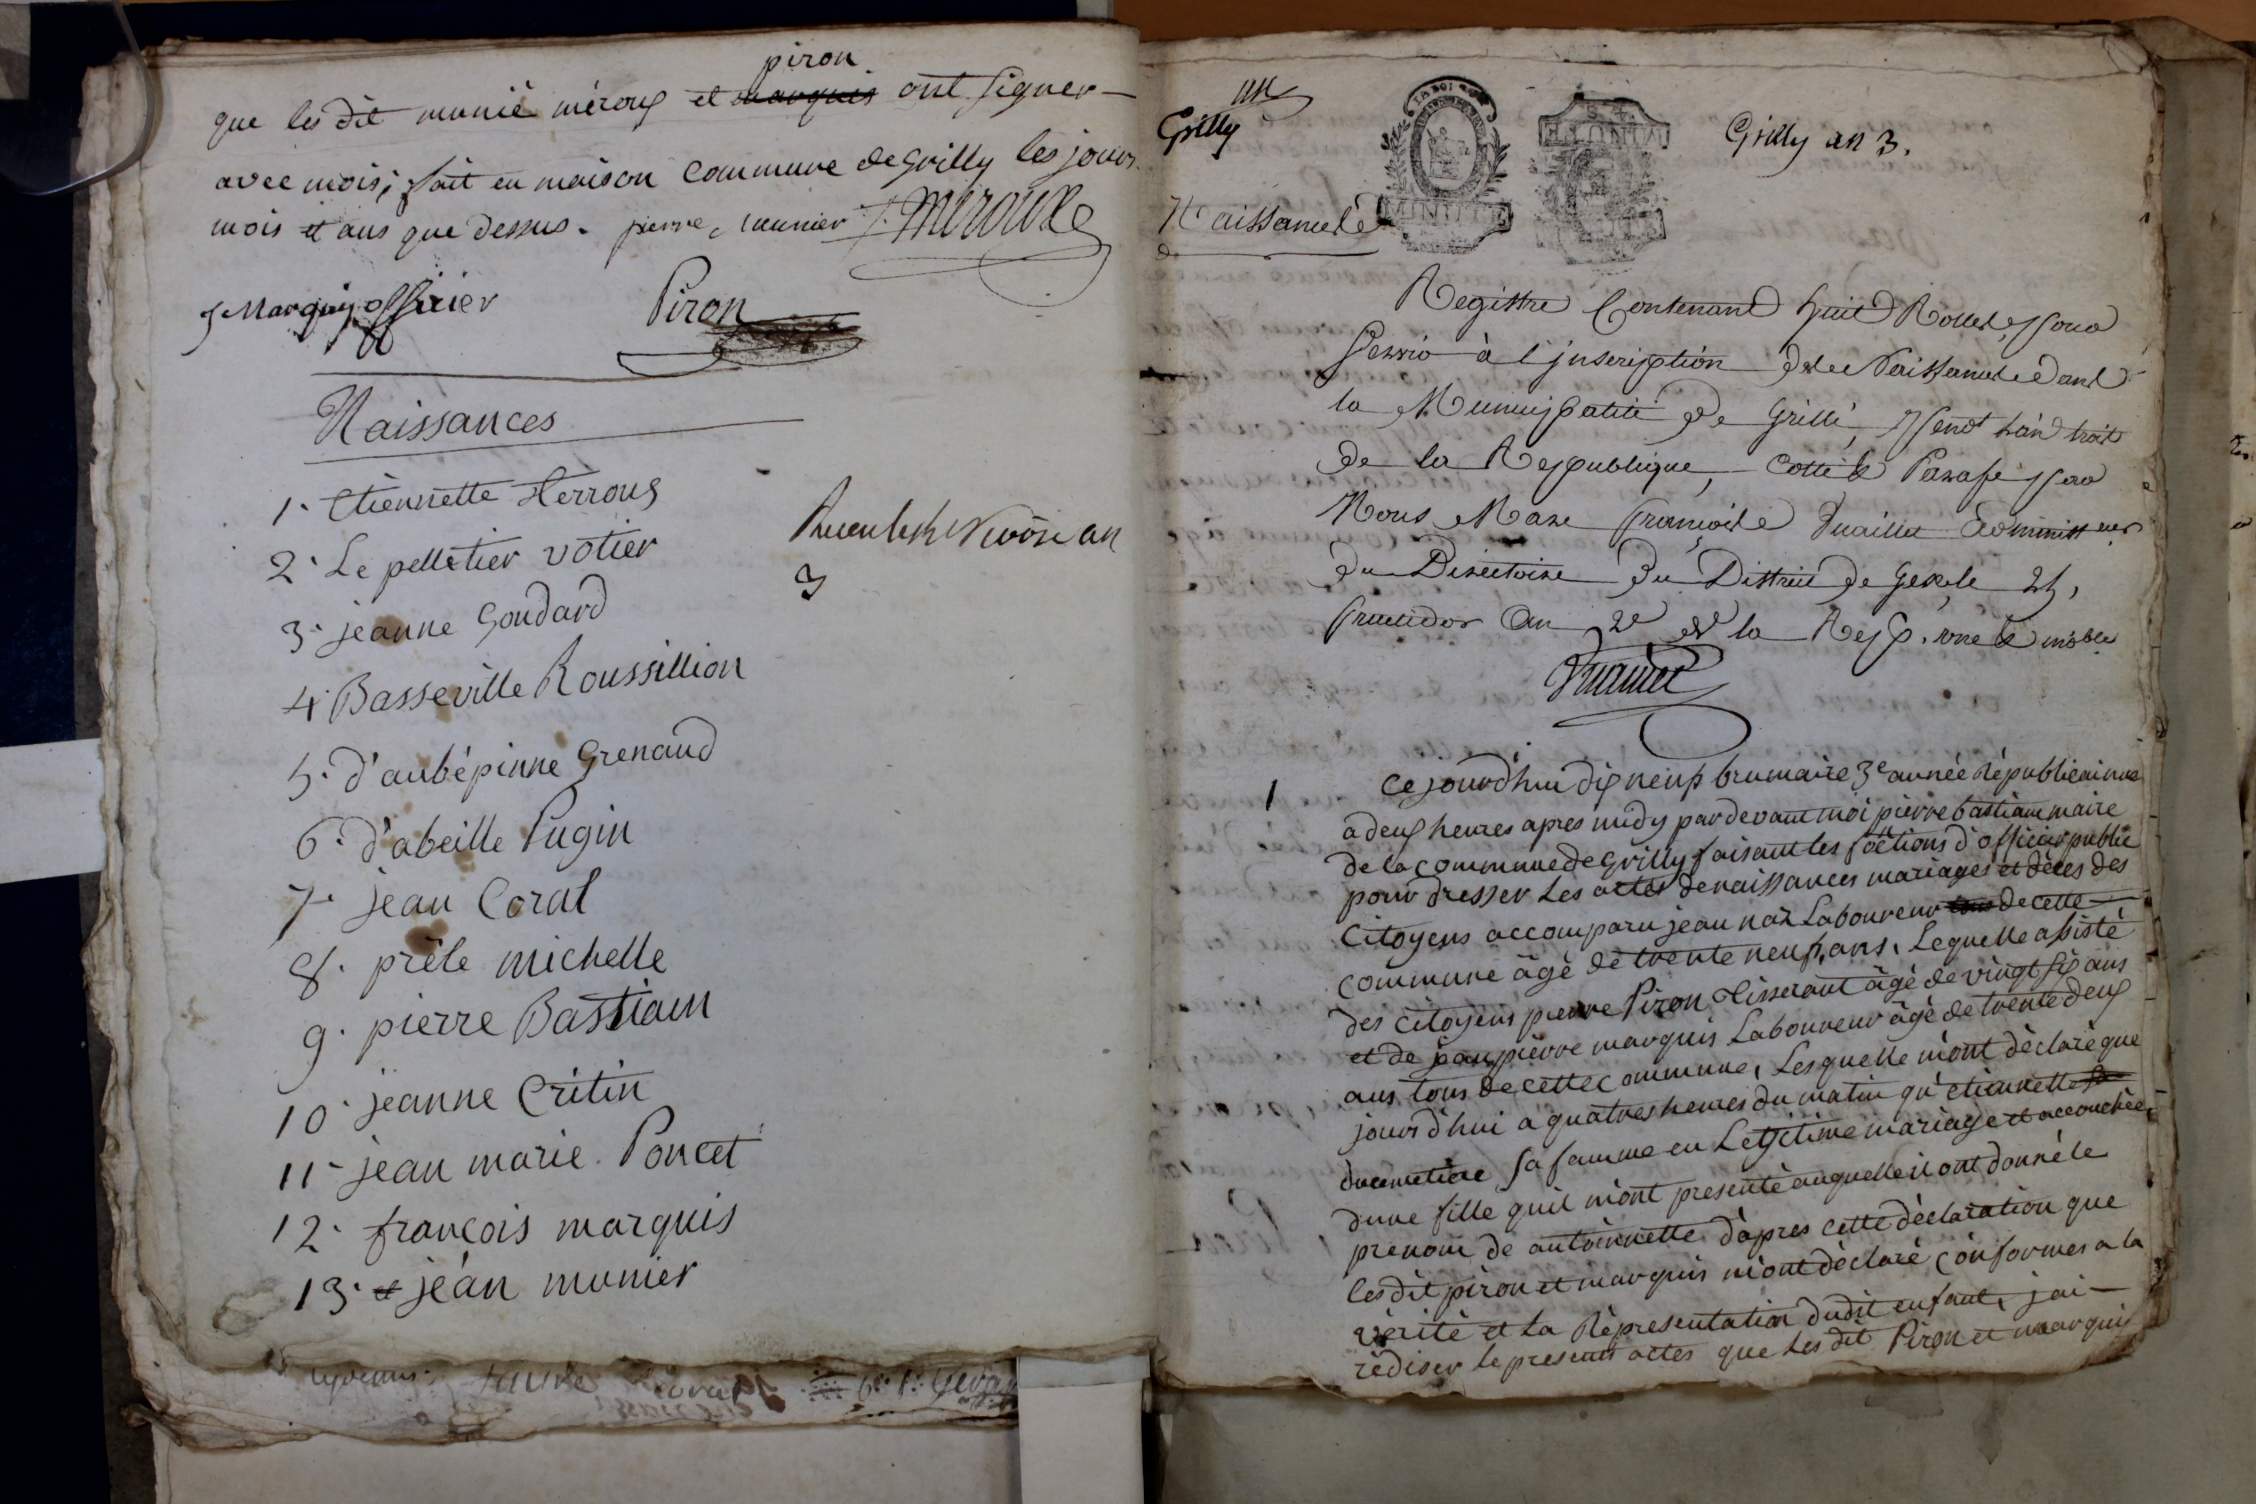 piron
que les dit munié méroux et marquis ont signer
avec mois, fait en maison commune de Grilly les jours
mois et ans que dessus. pierre munier J. Meroux
J Marquis officier Piron
Naissances
1. Etiennette Herroux
2. Le pelletier votier
3. jeanne Goudard
4. Basseville Roussillion
5. d'aubépinne Grenaud
6. d'abeille Pugin
7. jean Coral
8. prèle michelle
9. pierre Bastiam
10. jeanne Critin
11. jean marie Poncet
12. françois marquis
13. et jean munier
Nivôse an
3
Grilly
Grilly an 3.
MINUTE
Naissances
Registre Contenant huit Rolles pour
servir à l'inscription des Naissances dans
la Municipalité de Grilli, pendt l'an trois
de la République, Cotté & Parafé par
Nous Marc françois administ
du Directoire du District de Gex le 25
fructidor an 2e de la Rep. une & indble
1
Ce jourd'hui dix neuf brumaire 3e année Républicaine
a deux heures apres midy par devant moi pierre bastiam maire
de la commune de Grilly faisant les foctions d'officier public
pour dresser Les actes de naissances mariages et déces des
Citoyens a comparu jean naz Laboureur de cette
commune âgé de trente neuf ans, Lequelle assisté
des citoyens pierre Piron tisserant âgé de vingt six ans
et de jean pierre marquis Laboureur âgé de trente deux
ans tous de cette commune, Lesquelle m'ont déclaré que
jourd'hui a quatres heures du matin qu'etiennette
ducimetiére sa famme en Legitime mariage et accouchée
dune fille quil m'ont presenté auquelle il ont donné le
prenom de antoinnette d'apres cette déclaration que
les dit piron et marquis m'ont déclaré conformes a la
vérité et la Répresentation dudit enfant, j'ai
rédiser le presents actes que les dit Piron et marquis